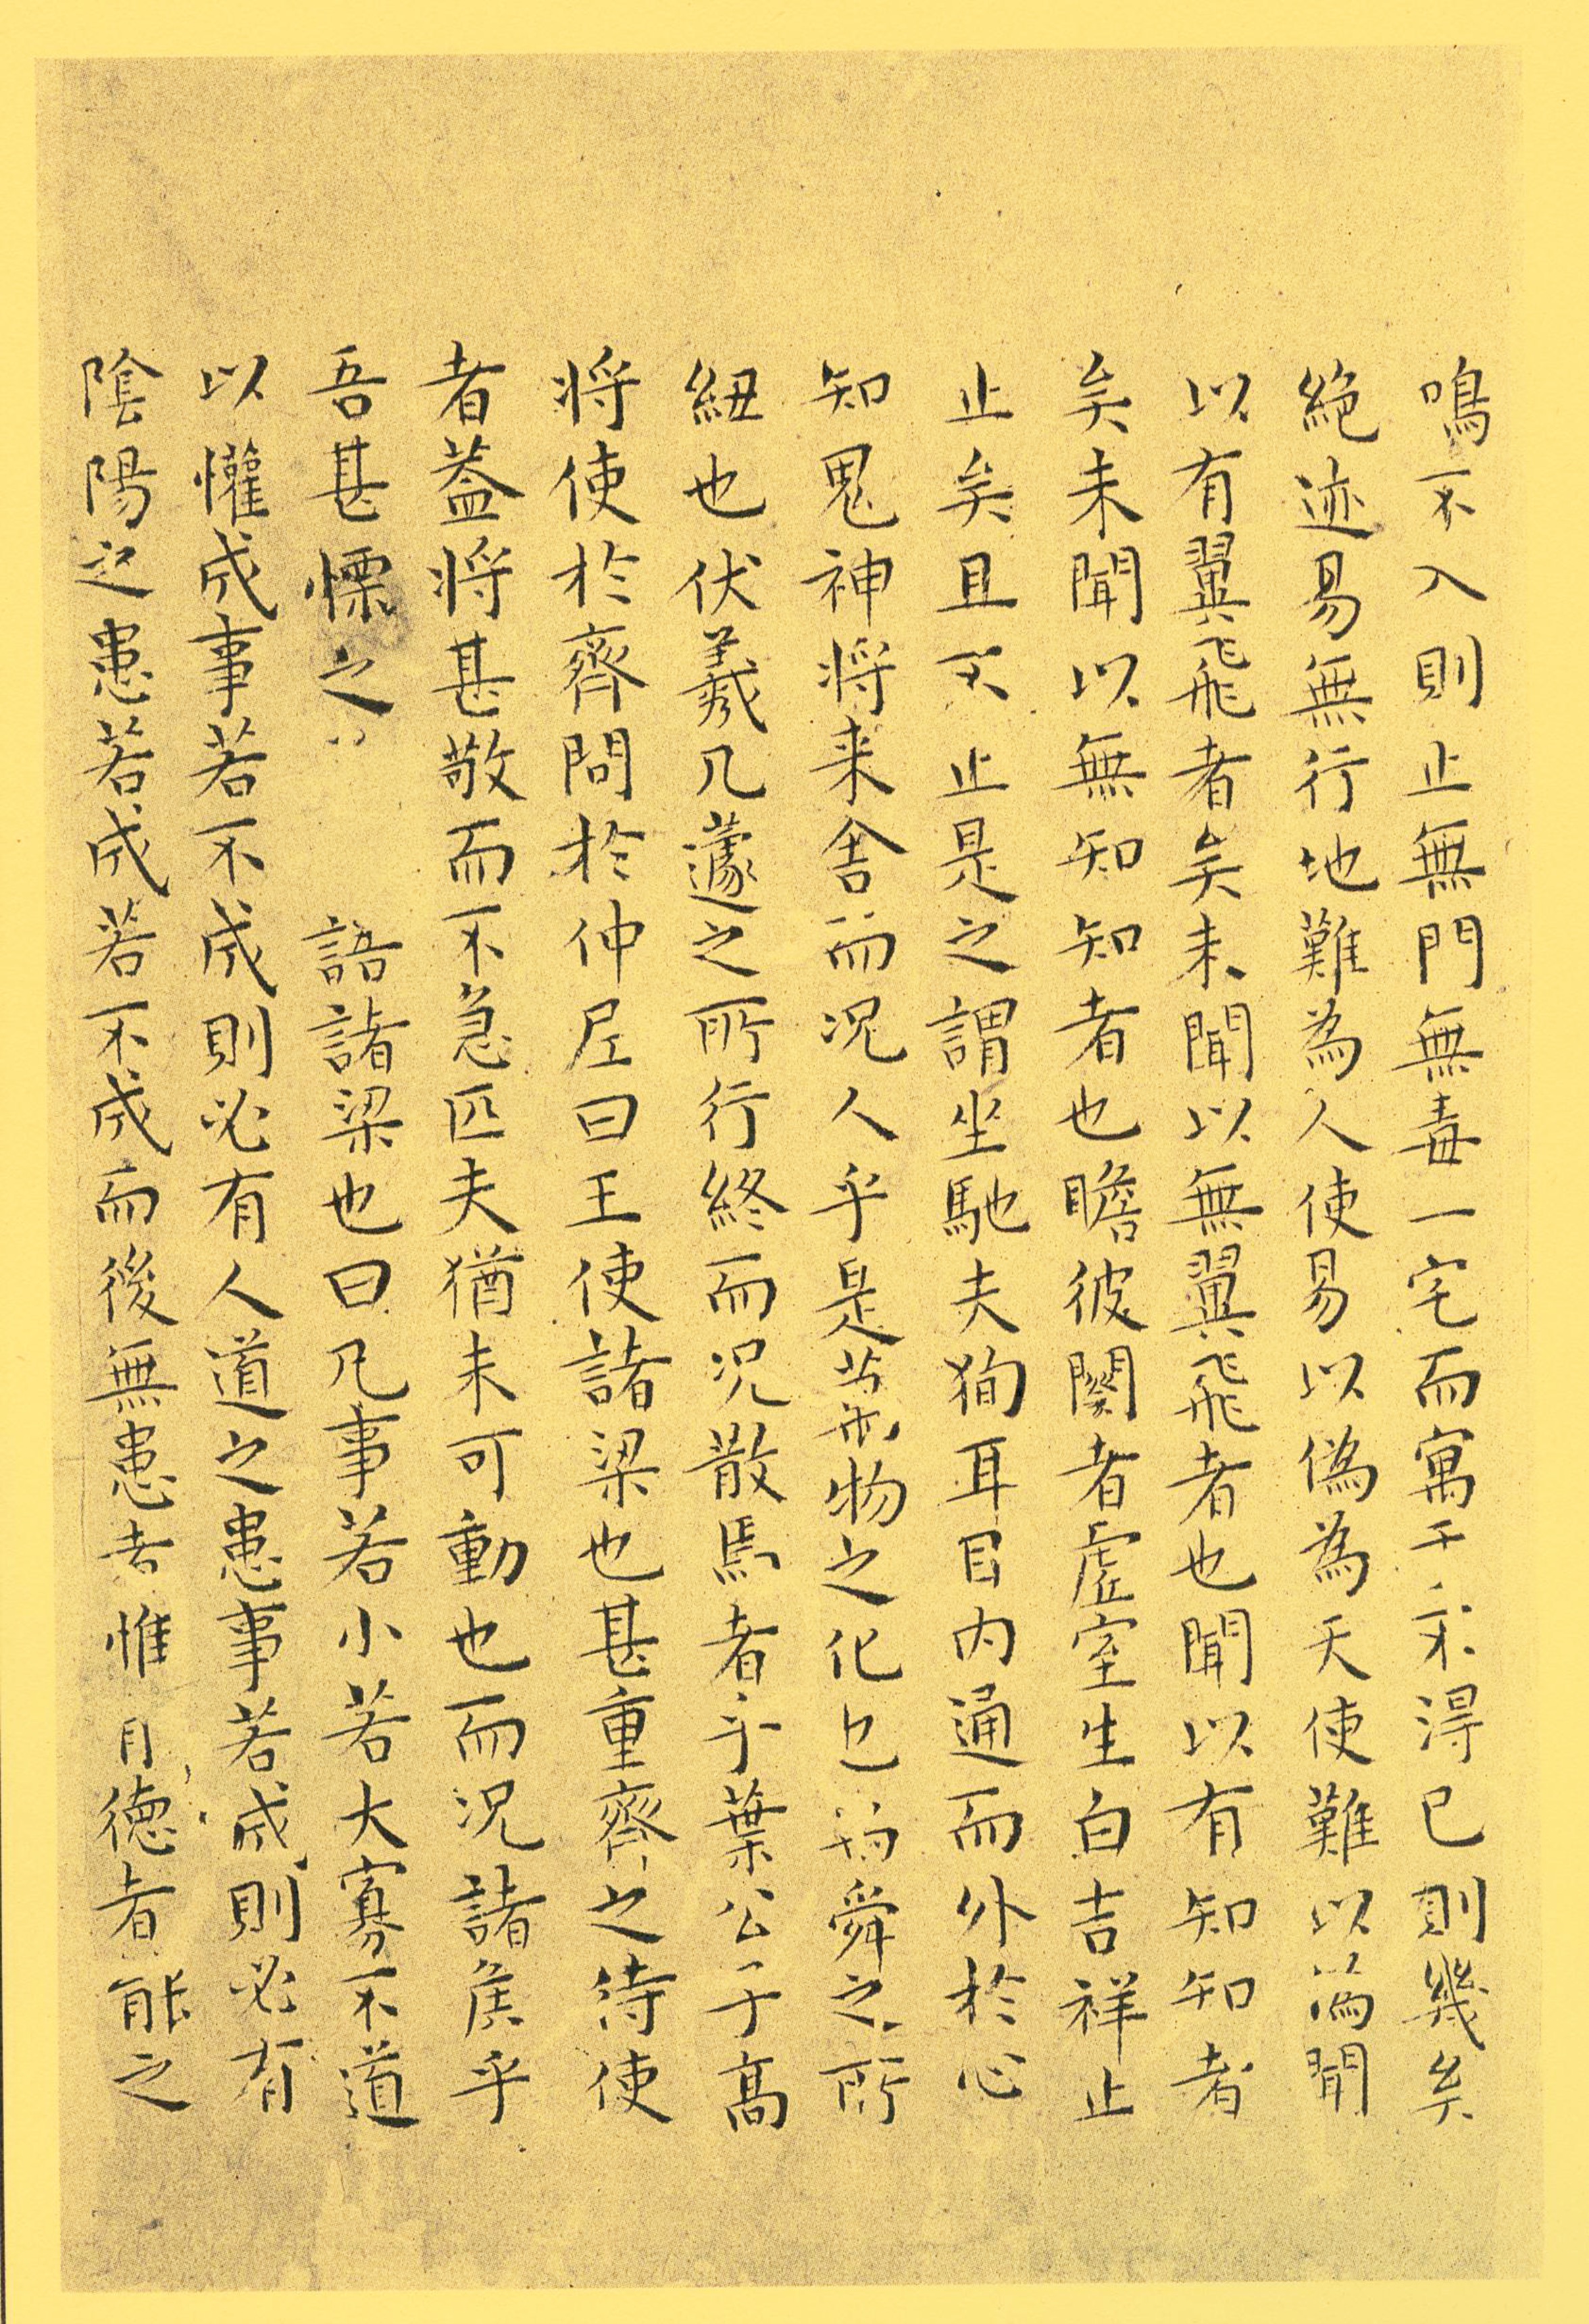 鳴不入則止無門無毒一宅而寓于不得已則幾矣
絕迹易無行地難為人使易以偽為天使難以偽聞
以有翼飛者矣未聞以無翼飛者也聞以有知知者
矣未聞以無知知者也瞻彼闋者虛室生白吉祥止
止矣且不止是之謂坐馳夫徇耳目內通而外於心
知鬼神將来舍而況人乎是萬物之化也舜之所
紐也伏羲几蘧之所行終而況散焉者乎葉公子高
將使於齊問於仲尼曰王使諸梁也甚重齊之待使
者葢將甚敬而不急匹夫猶未可動也而況諸侯乎
吾甚慄之 語諸梁也曰凡事若小若大寡不道
以懽成事若不成則必有人道之患事若成則必有
陰陽之患若成若不成而後無患者惟德者能之